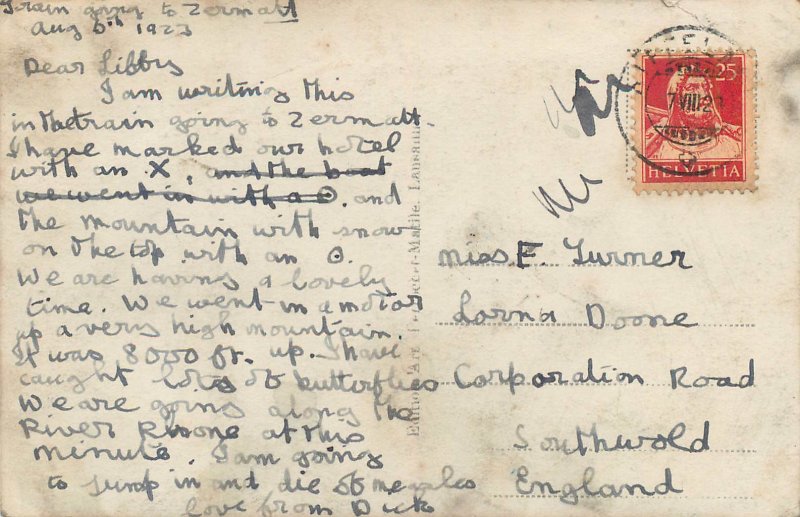 Train going to Zermatt
Aug 6th 1923
Dear Libby
I am writing this
in the train going to Zermatt.
I have marked our hotel
with an X, and the boat
we went in with a ⊙. and
the mountain with snow
on the top with an ⊙.
We are having a lovely
time. We went in a motor
up a very high mountain.
It was 8000 ft. up. I have
caught lots of butterflies
We are going along the
River Rhone at this
minute. I am going
to jump in and die of measles
love from Dick
25
7 VIII 23
HELVETIA
Miss E. Turner
Lorna Doone
Corporation Road
Southwold
England
Lausanne